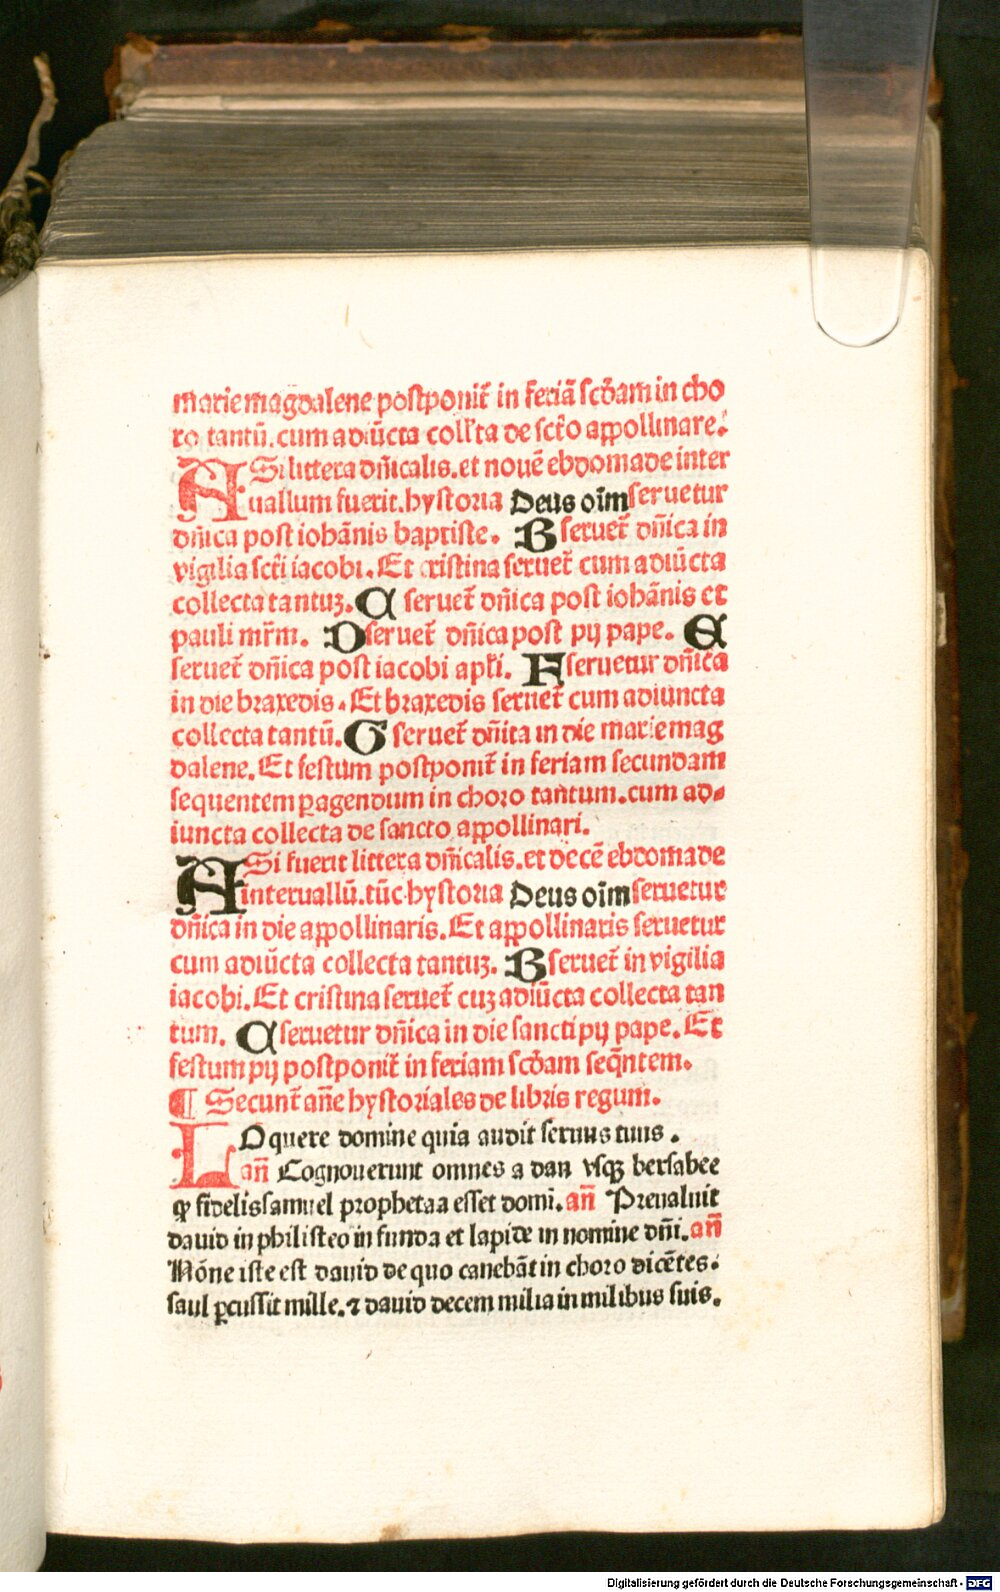 marie magdalene postponit᷑ in feriā scḋam in cho
ro tantū. cum adiūcta coll'ta de sct̄o appollinare.
A Si littera dn̄icalis. et nouē ebdomade inter
uallum fuerit. hystoria Deus oīm seruetur
dn̄ica post iohānis baptiste. B seruet᷑ dn̄ica in
vigilia sct̄i iacobi. Et cristina seruet᷑ cum adiūcta
collecta tantuꝫ. C seruet᷑ dn̄ica post iohānis et
pauli mr̄m. D seruet᷑ dn̄ica post pij pape. E
seruet᷑ dn̄ica post iacobi apl̄i. F seruetur dn̄ica
in die braxedis. Et braxedis seruet᷑ cum adiuncta
collecta tantū. G seruet᷑ dn̄ica in die marie mag
dalene. Et festum postponit᷑ in feriam secundam
sequentem ꝑagendum in choro tantum. cum ad⸗
iuncta collecta de sancto appollinari.
A Si fuerit littera dn̄icalis. et decē ebdomade
interuallū. tūc hystoria Deus oīm seruetur
dn̄ica in die appollinaris. Et appollinaris seruetur
cum adiūcta collecta tantuꝫ. B seruet᷑ in vigilia
iacobi. Et cristina seruet᷑ cuꝫ adiūcta collecta tan
tum. C seruetur dn̄ica in die sancti pij pape. Et
festum pij postponit᷑ in feriam scḋam seqn̄tem.
¶ Secunt᷑ an̄e hystoriales de libris regum.
LOquere domine quia audit seruus tuus.
an̄ Cognouerunt omnes a dan vsqꝫ bersabee
ꝙ fidelis samuel prophetaa esset domī. an̄ Preualuit
dauid in philisteo in funda et lapide in nomine dn̄i. an̄
Nōne iste est dauid de quo canebāt in choro dicētes.
saul ꝑcussit mille. ⁊ dauid decem milia in milibus suis.
Digitalisierung gefördert durch die Deutsche Forschungsgemeinschaft - DFG